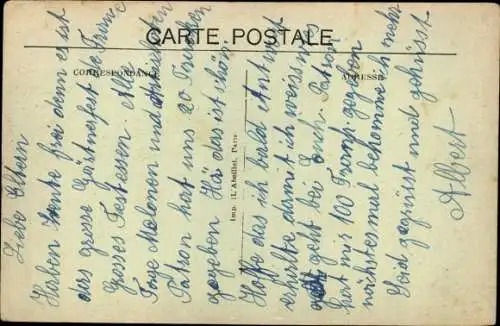 CARTE POSTALE
CORRESPONDANCE
ADRESSE
Imp. (L'Abeille), Paris
Liebe Eltern
Haben heute frei denn es ist
das grosse Gärtnerfest
Grosses Festessen Alle
Tage Melonen und
Patron hat uns 20
gegeben Ha das ist schön
Hoffe das ich bald Antwort
erhalte damit ich weiss was
geht bei Euch Patron
hat mir 100 Frank gegeben
nächtesmal bekomme ich mehr
Seid gegrüsst und geküsst
Albert